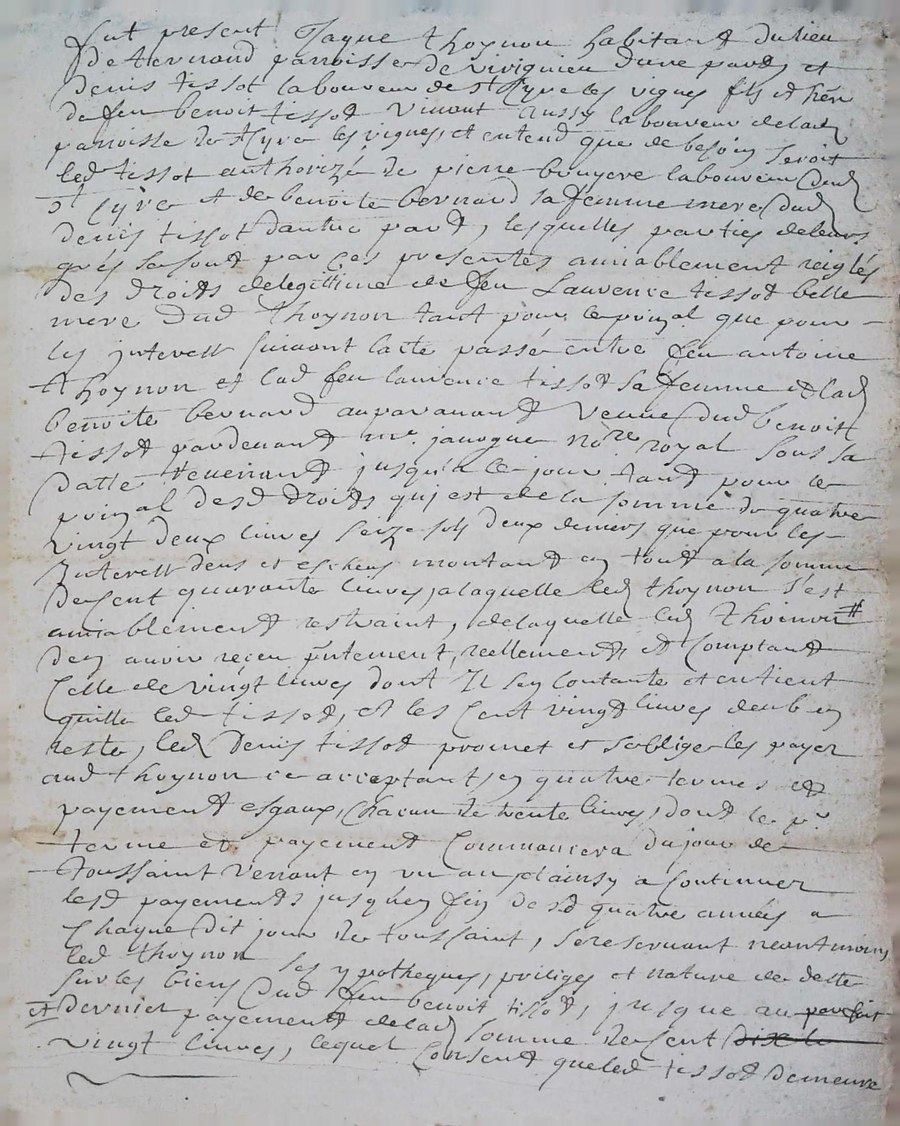 fut present Jaque thoynon habitant du lieu
de ternand parroisse de virignieu dune part, et
denis tissot laboureur de st Cyre les vignes fils et hérr
de feu benoit tissot vivant aussy laboureur de lad
parroisse de st Cyre les vignes, et entend que de besoin seroit
led tissot authorizé de pierre bruyere laboureur dud
st Cyre et de benoite bernard sa femme mere dud
denis tissot dautre part, lesquelles parties de leurs
grés se sont par ces presentes amiablement reiglés
des droits de legittime de feu Laurence tissot belle
mere dud thoynon tant pour le prinzal que pour
les interest suivant lacte passé entre feu antoine
thoynon et lad feu laurence tissot sa femme et lad
benoite bernard auparavant veuve dud benoist
tissot pardevant me janogue nore royal sous sa
datte revenant jusqu'a ce jour tant pour le
prinzal desd droits qui est de la somme de quatre
vingt deux livres seize sols deux deniers que pour les
Interest deus et escheus montant en tout a la somme
de cent quarante livres, a laquelle led thoynon s'est
amiablement restraint, de laquelle led thoinon #
den avoir reçeu pntement, reellement et Comptant
Celle de vingt livres dont Il sen contante et en tient
quitte led tissot, et les Cent vingt livres deub en
reste, led denis tissot promet et soblige les payer
aud thoynon ce acceptant, en quatre termes et
payement esgaux, Chacun de trente livres, dont le pr
terme et payement Commancera du jour de
toussaint venant en un an plainsy a continuer
lesd payements jusqu'en fin desd quatre années a
Chaque dit jour de toussaint, se reservant neantmoins
led thoynon ses ypotheques, priviges et nature de debte
sur les biens dud feu benoit tissot, jusque au parfait
et dernier payement de lad somme de cent dix le
vingt livres, lequel Consent que led tissot demeure